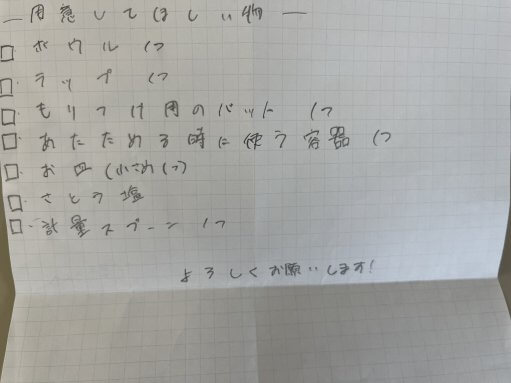 ー用意してほしい物ー
□・ボウル 1つ
□・ラップ 1つ
□・もりつけ用のバット 1つ
□・あたためる時に使う容器 1つ
□・お皿(小さめ1つ)
□・さとう 塩
□・計量スプーン 1つ
よろしくお願いします!